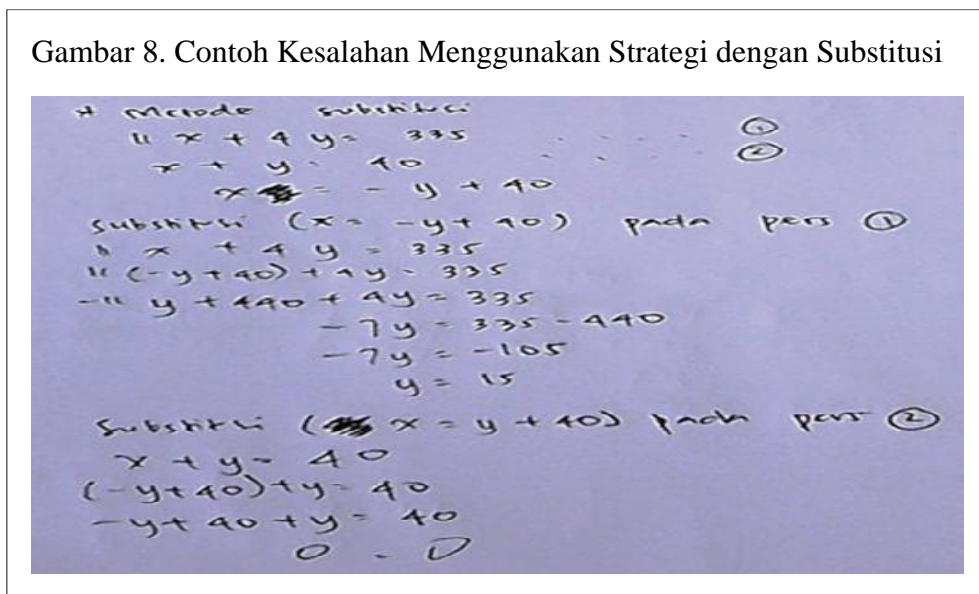 Gambar 8. Contoh Kesalahan Menggunakan Strategi dengan Substitusi
* Metode substitusi
11 x + 4 y = 335 . . . . ①
x + y = 40 . . . . ②
x = - y + 40
Substitusi (x = -y + 40) pada pers ①
11 x + 4 y = 335
11 (-y + 40) + 4y = 335
-11 y + 440 + 4y = 335
-7y = 335 - 440
-7y = -105
y = 15
Substitusi ( x = y + 40) pada pers ②
x + y = 40
(-y + 40) + y = 40
-y + 40 + y = 40
0 = 0